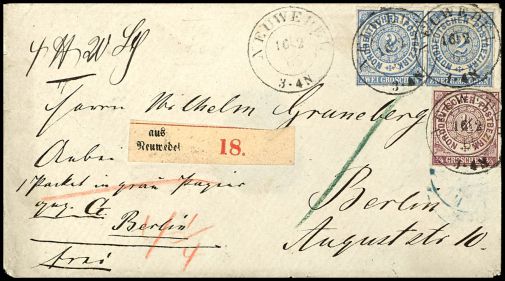 NEUWEDEL
16 2
3-4N
NORDDEUTSCHER POSTBEZIRK
ZWEI GROSCHEN
NORDDEUTSCHER POSTBEZIRK
ZWEI GROSCHEN
NEUWEDEL
16 2
NORDDEUTSCHER POSTBEZIRK
1/4 GROSCHEN 1/4
16 2
Herrn Wilhelm Gruneberg
aus
Neuwedel
18.
Anbei
1 Packet in grau Papier
G
Berlin
frei
Berlin
Auguststr 10.